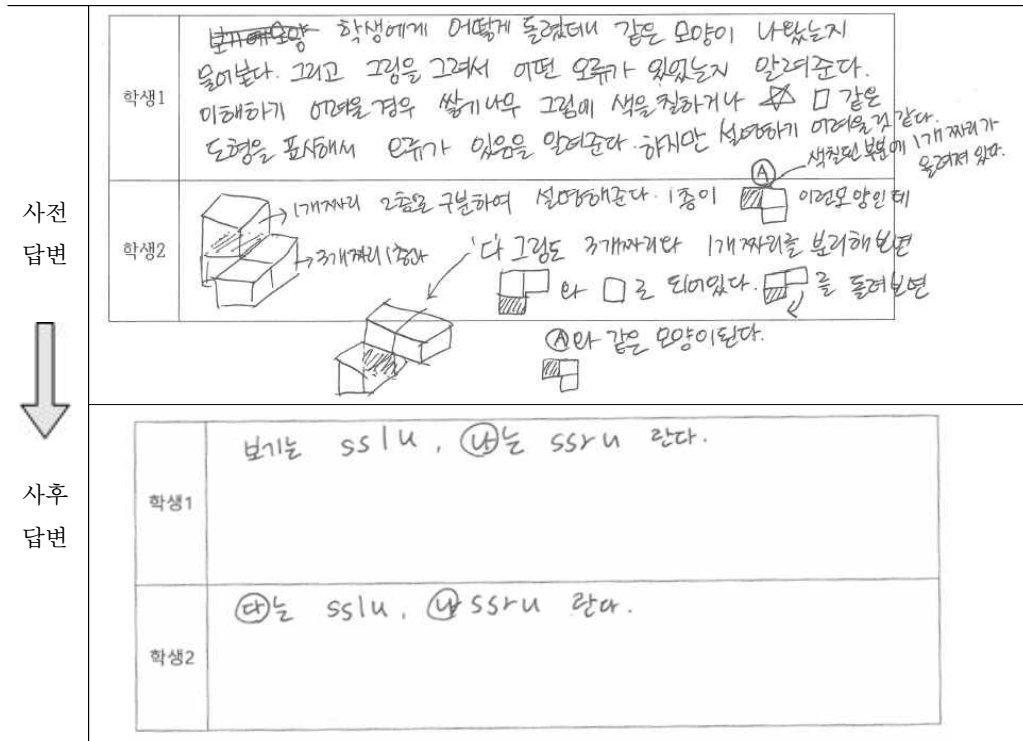 사전
답변
학생1
보기에모양 학생에게 어떻게 돌렸더니 같은 모양이 나왔는지
물어본다. 그리고 그림을 그려서 어떤 오류가 있었는지 알려준다.
이해하기 어려울 경우 쌓기나무 그림에 색을 칠하거나 ☆ □ 같은
도형을 표시해서 오류가 있음을 알려준다. 하지만 설명하기 어려울것 같다.
학생2
→1개짜리 2층으로 구분하여 설명해준다. 1층이 이런모양인데
Ⓐ
색칠된 부분에 1개 짜리가
올려져 있다.
→3개짜리 1층과
'다 그림도 3개짜리와 1개짜리를 분리해보면
와 □로 되어있다. 를 돌려보면
Ⓐ와 같은 모양이된다.
사후
답변
학생1
보기는 sslu, ㉯는 ssru 란다.
학생2
㉰는 sslu, ㉯ ssru 란다.